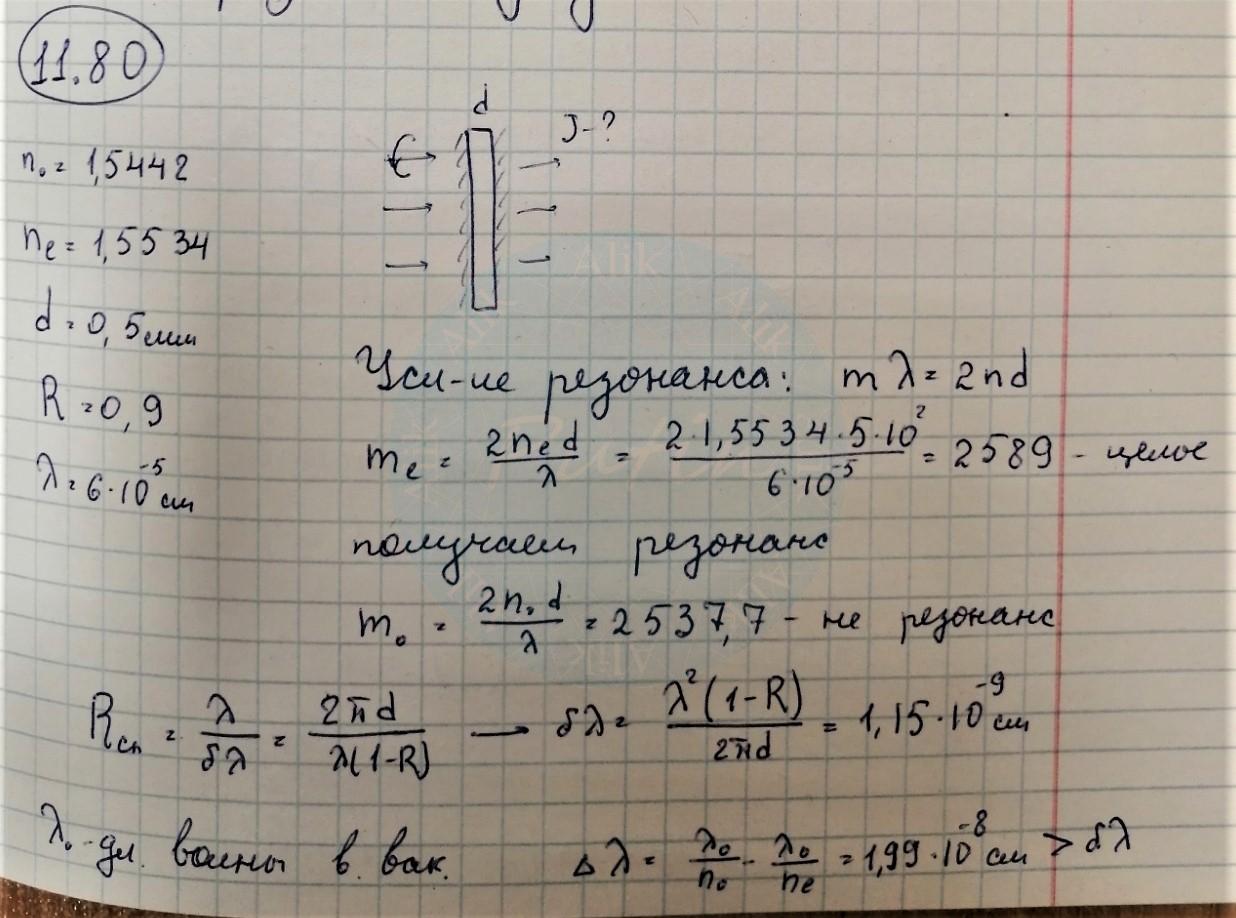 11.80
d
J-?
n₀ = 1,5442
nₑ = 1,5534
d = 0,5 мм
R = 0,9
λ = 6·10⁻⁵ см
Усл-ие резонанса: mλ = 2nd
mₑ = 2nₑd/λ = 2·1,5534·5·10²/6·10⁻⁵ = 2589 - целое
получаем резонанс
m₀ = 2n₀d/λ = 2537,7 - не резонанс
Rсп = λ/δλ = 2πd/λ(1-R) → δλ = λ²(1-R)/2πd = 1,15·10⁻⁹ см
λ₀ - дл. волны в вак. Δλ = λ₀/n₀ - λ₀/nₑ = 1,99·10⁻⁸ см > δλ
Alik
Alik
Alik